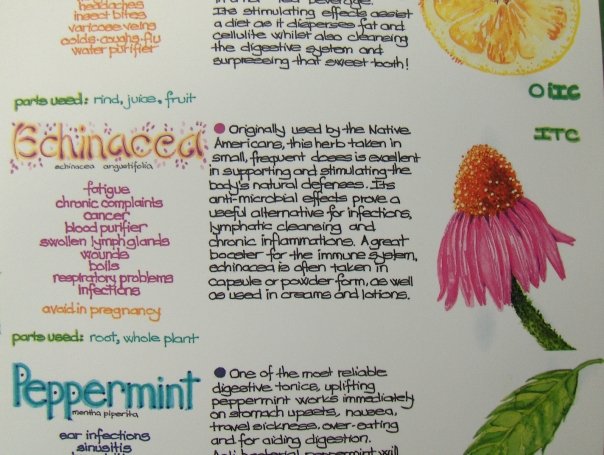 headaches
insect bites
varicose veins
colds · coughs · flu
water purifier
Its stimulating effects assist
a diet as it disperses fat and
cellulite whilst also cleansing
the digestive system and
surpressing that sweet tooth!
parts used: rind, juice, fruit
OiiC
ITC
Echinacea
echinacea angustifolia
fatigue
chronic complaints
cancer
blood purifier
swollen lymph glands
wounds
boils
respiratory problems
infections
avoid in pregnancy
parts used: root, whole plant
Originally used by the Native
Americans, this herb taken in
small, frequent doses is excellent
in supporting and stimulating the
body's natural defenses. Its
anti-microbial effects prove a
useful alternative for infections,
lymphatic cleansing and
chronic inflammations. A great
booster for the immune system,
echinacea is often taken in
capsule or powder form, as well
as used in creams and lotions.
Peppermint
mentha piperita
ear infections
sinusitis
One of the most reliable
digestive tonics, uplifting
peppermint works immediately
on stomach upsets, nausea,
travel sickness, over-eating
and for aiding digestion.
Anti-bacterial peppermint will